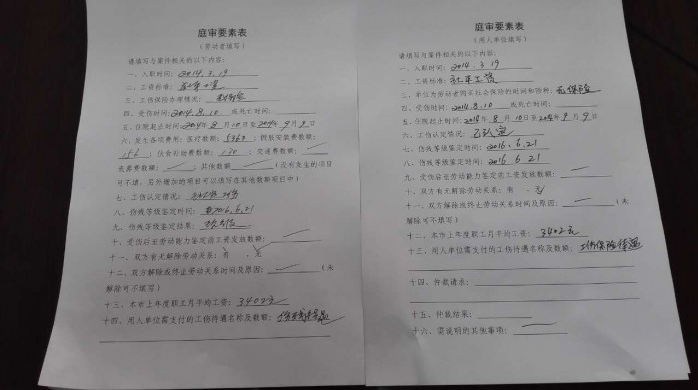 庭审要素表
（劳动者填写）
请填写与案件相关的以下内容：
一、入职时间：2014.3.19
二、工资标准：
三、工伤保险办理情况：
四、受伤时间：2014.8.10 或死亡时间：
五、住院起止时间：2014年8月10日至2014年9月9日
六、发生各项费用：医疗数额：；假肢安装费数额：
；伙食补助费数额：；交通费数额：
；丧葬费数额：；其他数额（没有发生的项目
可不填，另外增加的项目可以填写在其他数额项目中）
七、工伤认定情况：
八、伤残等级鉴定时间：2016.6.21
九、伤残等级鉴定结果：
十、受伤后至劳动能力鉴定前工资发放数额：
十一、双方有无解除劳动关系：有 、无
十二、双方解除或终止劳动关系时间及原因：（未
解除可不填写）
十三、本市上年度职工月平均工资：3402元
十四、用人单位需支付的工伤待遇名称及数额：
庭审要素表
（用人单位填写）
请填写与案件相关的以下内容：
一、入职时间：2014.3.19
二、工资标准：社平工资
三、单位为劳动者购买社会保险的时间和险种：
四、受伤时间：2014.8.10 或死亡时间：
五、住院起止时间：2014年8月10日至2014年9月9日
六、工伤认定情况：已认定
七、伤残等级鉴定时间：2016.6.21
八、伤残等级鉴定时间：2016 6 21
九、受伤后至劳动能力鉴定前工资发放数额：
十、双方有无解除劳动关系：有 、无
十一、双方解除或终止劳动关系时间及原因：（未
解除可不填写）
十二、本市上年度职工月平均工资：3402元
十三、用人单位需支付的工伤待遇名称及数额：工伤保险待遇
十四、仲裁请求：
十五、仲裁结果：
十六、需说明的其他事项：